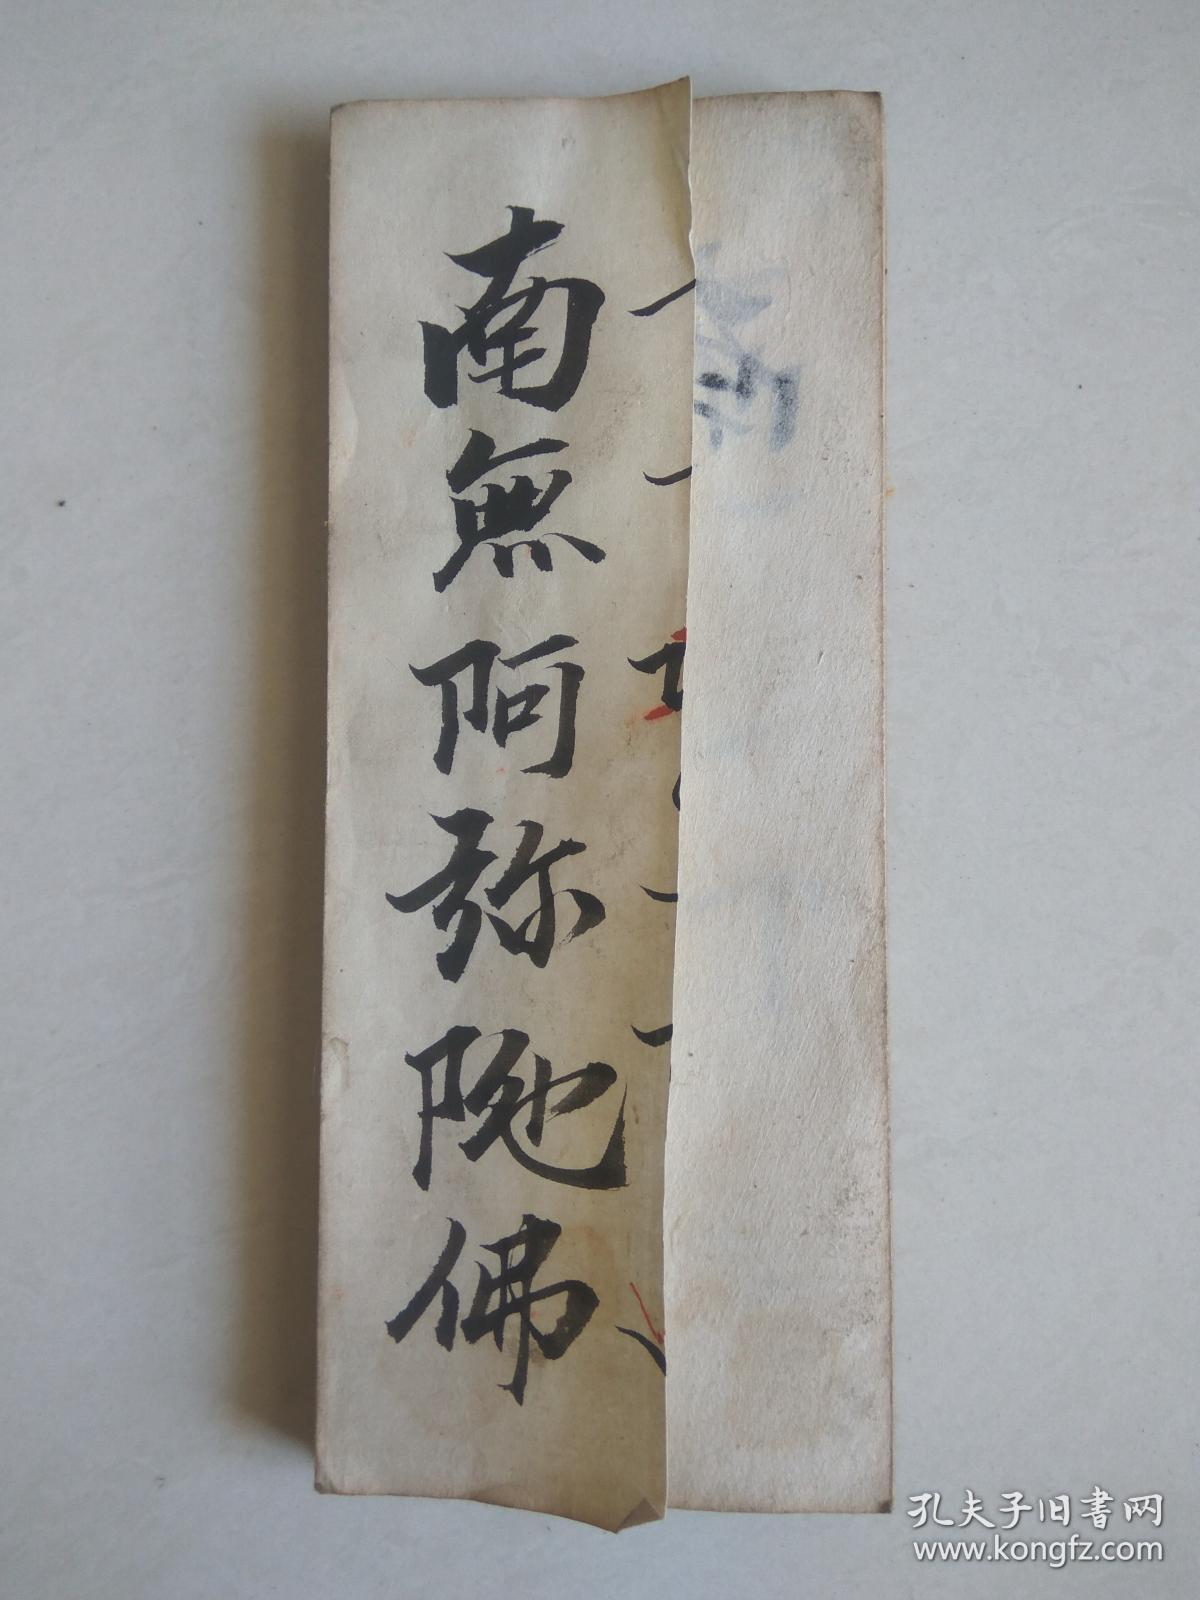 南無阿弥陁佛
孔夫子旧書网
www.kongfz.com